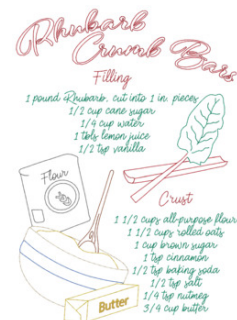 Rhubarb
Crumb Bars
Filling
1 pound Rhubarb, cut into 1 in. pieces
1/2 cup cane sugar
1/4 cup water
1 tbls lemon juice
1/2 tsp vanilla
Flour
Crust
1 1/2 cups all-purpose flour
1 1/2 cups rolled oats
1 cup brown sugar
1 tsp cinnamon
1/2 tsp baking soda
1/2 tsp salt
1/4 tsp nutmeg
3/4 cup butter
Butter